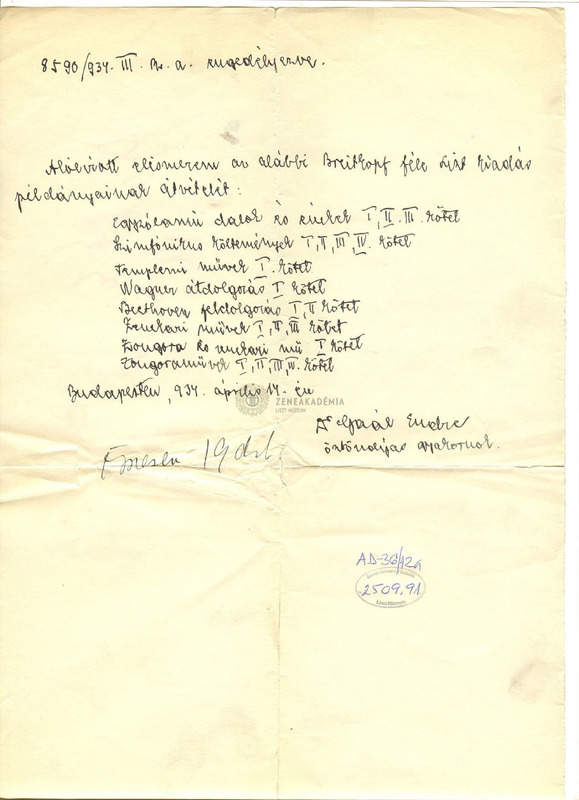 8590/934. III. Br. a. engedélyezve.
Alólirott elismerem az alábbi Breitkopf féle Liszt kiadás
példányainak átvételét:
Egyszólamú dalok és énekek I, II. III. kötet
Szimfónikus költemények I, II, III, IV. kötet
Templomi művek I. kötet
Wagner átdolgozás I kötet
Beethoven feldolgozás I, II kötet
Zenekari művek I, II, III kötet
Zongora és zenekari mű I kötet
Zongoraművek I, II, III, IV. kötet
Budapesten, 934. április 14.-én
ZENEAKADÉMIA
LISZT MÚZEUM
Dr Gaál Endre
ösztöndíjas gyakornok.
19 db
AD-36/12a
2509.91